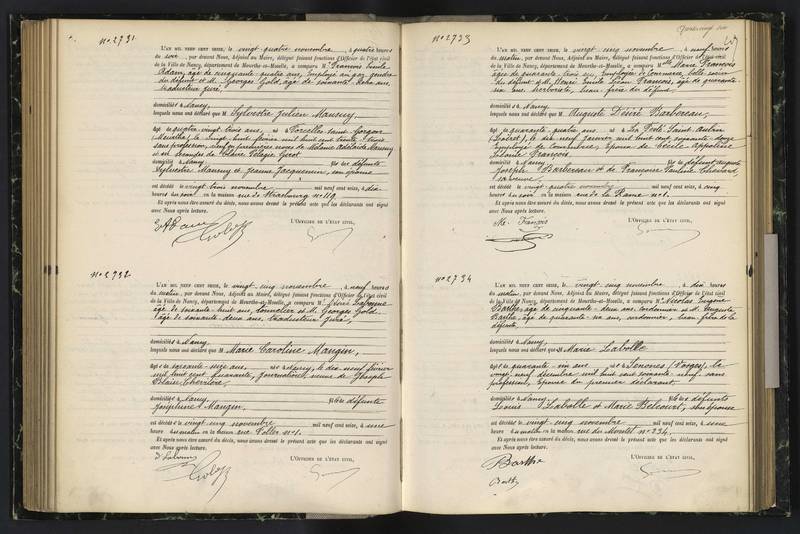 No 2731
L'AN MIL NEUF CENT SEIZE, le vingt quatre novembre, à quatre heures
du soir, par devant Nous, Adjoint au Maire, délégué faisant fonctions d'Officier de l'état civil
de la Ville de Nancy, département de Meurthe-et-Moselle, a comparu M. François Emile
Adam, âgé de cinquante quatre ans, Employé au gaz, gendre
du défunt et M. Georges Gold, âgé de soixante deux ans,
traducteur juré,
domiciliés à Nancy,
lesquels nous ont déclaré que M Sylvestre Julien Maumy,
âgé de quatre vingt trois ans, né à Forcelles Saint Gorgon
(Meurthe) le vingt huit février mil huit cent trente trois
sans profession, veuf en premières noces de Mélanie Adélaïde Maumy
et en secondes de Claire Pélagie Girot
domicilié à Nancy, fils des défunts
Sylvestre Maumy et Jeanne Jacquemin, son épouse
est décédé le vingt trois novembre mil neuf cent seize, à dix
heures du soir en la maison rue de Strasbourg no 119
Et après nous être assuré du décès, nous avons dressé le présent acte que les déclarants ont signé
avec Nous après lecture.
L'OFFICIER DE L'ÉTAT CIVIL,
No 2732
L'AN MIL NEUF CENT SEIZE, le vingt cinq novembre, à neuf heures
du matin, par devant Nous, Adjoint au Maire, délégué faisant fonctions d'Officier de l'état civil
de la Ville de Nancy, département de Meurthe-et-Moselle, a comparu M.
âgé de soixante huit ans, tonnelier et M. Georges Gold,
âgé de soixante deux ans, traducteur juré,
domiciliés à Nancy,
lesquels nous ont déclaré que M Marie Caroline Mangin,
âgée de soixante seize ans, née à Nancy, le dix neuf février
mil huit cent quarante, journalière, veuve de Joseph
domiciliée à Nancy, fille de défunte
Joséphine Mangin,
est décédée le vingt cinq novembre mil neuf cent seize, à une
heure du matin en la maison rue no 1.
Et après nous être assuré du décès, nous avons dressé le présent acte que les déclarants ont signé
avec Nous après lecture.
L'OFFICIER DE L'ÉTAT CIVIL,
No 2733
L'AN MIL NEUF CENT SEIZE, le vingt cinq novembre, à neuf heures
du matin, par devant Nous, Adjoint au Maire, délégué faisant fonctions d'Officier de l'état civil
de la Ville de Nancy, département de Meurthe-et-Moselle, a comparu Marie François
âgée de quarante trois ans, Employée de Commerce, belle soeur
du défunt et M. Henri Emile Jean François, âgé de quarante
six ans, herboriste, beau frère du défunt,
domiciliés à Nancy
lesquels nous ont déclaré que M Auguste Désiré Barbereau,
âgé de quarante quatre ans, né à La Ferté Saint Aubin
(Loiret) le dix neuf janvier mil huit cent soixante douze
Employé de Commerce, époux de Cécile Appoline
Léonie François,
domicilié à Nancy, fils de défunt Auguste
Joseph Barbereau et de Françoise Pauline
sa veuve
est décédé le vingt quatre novembre mil neuf cent seize, à cinq
heures du soir en la maison rue de la Ravine no 1.
Et après nous être assuré du décès, nous avons dressé le présent acte que les déclarants ont signé
avec Nous après lecture.
M. François
L'OFFICIER DE L'ÉTAT CIVIL,
No 2734
L'AN MIL NEUF CENT SEIZE, le vingt cinq novembre, à dix heures
du matin, par devant Nous, Adjoint au Maire, délégué faisant fonctions d'Officier de l'état civil
de la Ville de Nancy, département de Meurthe-et-Moselle, a comparu M. Nicolas Eugène
Barthe, âgé de cinquante deux ans, cordonnier et M. Auguste
Barthe, âgé de quarante six ans, cordonnier, beau frère de la
défunte,
domiciliés à Nancy,
lesquels nous ont déclaré que M Marie Labolle
âgée de quarante six ans, née à Senones (Vosges), le
vingt neuf décembre mil huit cent soixante neuf sans
profession, épouse du premier déclarant
domiciliée à Nancy, fille des défunts
Louis Labolle et Marie Belcourt, son épouse
est décédée le vingt cinq novembre mil neuf cent seize, à une
heure du matin en la maison rue du Montet no 234.
Et après nous être assuré du décès, nous avons dressé le présent acte que les déclarants ont signé
avec Nous après lecture.
Barthe
Barthe
L'OFFICIER DE L'ÉTAT CIVIL,